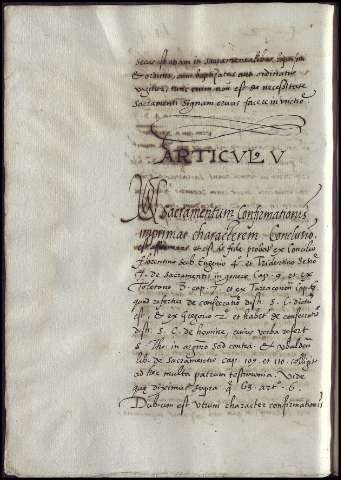 secus est etiam in sacramentalibus baptismi
& ordinis, cum baptizatus aut ordinatus
ungitur, tunc enim non est de necessitate
Sacramenti signum crucis facere in unctio.
ARTICVL, V
Sacramentum Confirmationis
imprimat characterem. Conclusio
est et est de fide probat ex Concilio
Florentino sub Eugenio 4º et Tridentino Seßº
7. de Sacramentis in genere Cap. 9. et ex
Toletano 8. cap. 7. et ex Tarraconen Cap. 6.
quod refertur de consecratio disti. 5. C. dictū
est. & ex Gregorio 2º et habet de consecratiō
disti. 5. C. de homine, cuius verba refert
S. Tho. in argvo Sed contra. & Vbalden
lib. de Sacramentis cap. 109. et 110. colligit
ad hoc multa patrum testimonia. Vide
quę diximus supra q. 63. art. 6.
Dubium est utrum character confirmationis